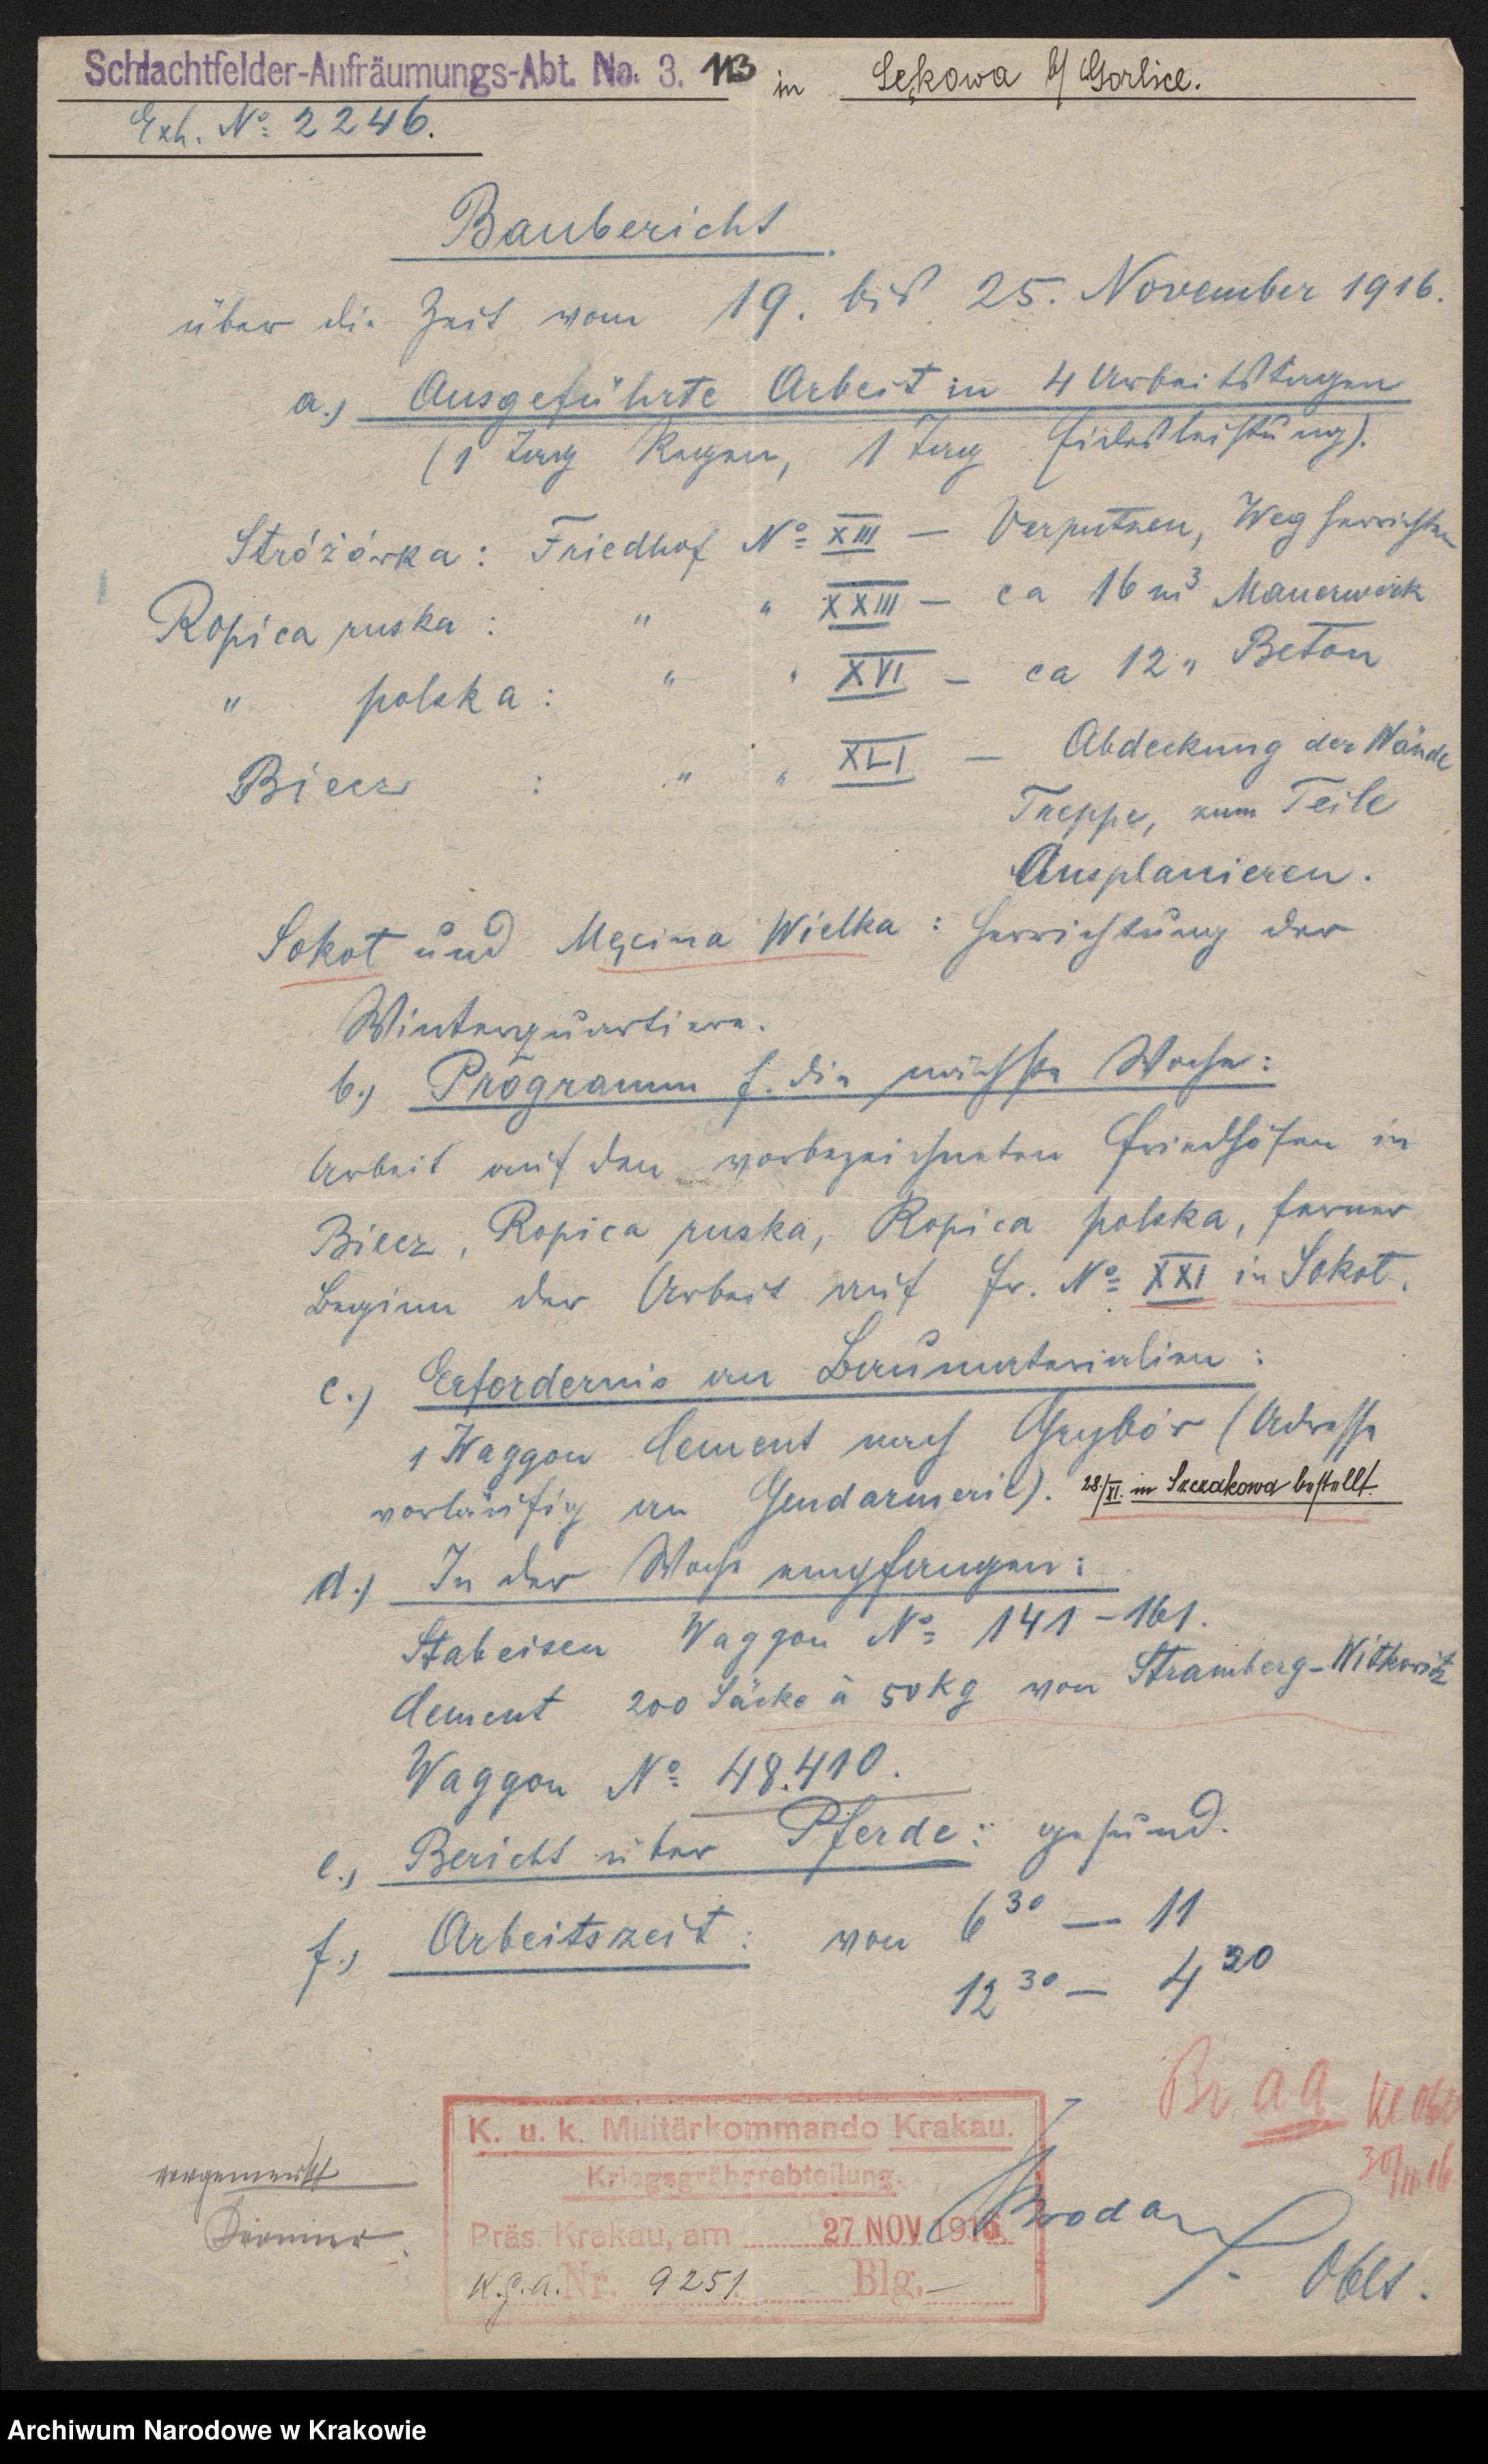 Schlachtfelder-Aufräumungs-Abt. No. 3. 113 in Sękowa b/ Gorlice.
Exh. No 2246.
Baubericht
über die Zeit vom 19. bis 25. November 1916.
a.) Ausgeführte Arbeit in 4 Arbeitstagen
(1 Tag Regen, 1 Tag Eidesleistung).
Stróżówka: Friedhof No XIII — Verputzen, Weg herrichten
Ropica ruska: " " XXIII — ca 16 m3 Mauerwerk
" polska: " " XVI — ca 12 " Beton
Biecz : " " XLI — Abdeckung der Wände
Treppe, zum Teile
Ausplanieren.
Sokoł und Męcina Wielka: Herrichtung der
Winterquartiere.
b.) Programm f. die nächste Woche:
Arbeit auf den vorbezeichneten Friedhöfen in
Biecz, Ropica ruska, Ropica polska, ferner
Beginn der Arbeit auf Fr. No XXI in Sokoł.
c.) Erfordernis an Baumaterialien:
1 Waggon Cement nach Grybów (Adresse
vorläufig an Gendarmerie). 28/XI. in Szczakowa bestellt.
d.) In der Woche empfangen:
Stabeisen Waggon No 141-161.
Cement 200 Säcke à 50 kg von Stramberg-Witkowitz
Waggon No 48.410.
e.) Bericht über Pferde: gesund.
f.) Arbeitszeit: von 6 30 — 11
12 30 — 4 30
Br. a a
30/11.16
K. u. k. Militärkommando Krakau.
Kriegsgräberabteilung.
vorgemerkt
Präs. Krakau, am 27 NOV 1916.
K.g.a. Nr. 9251 Blg. —
Oblt.
Archiwum Narodowe w Krakowie